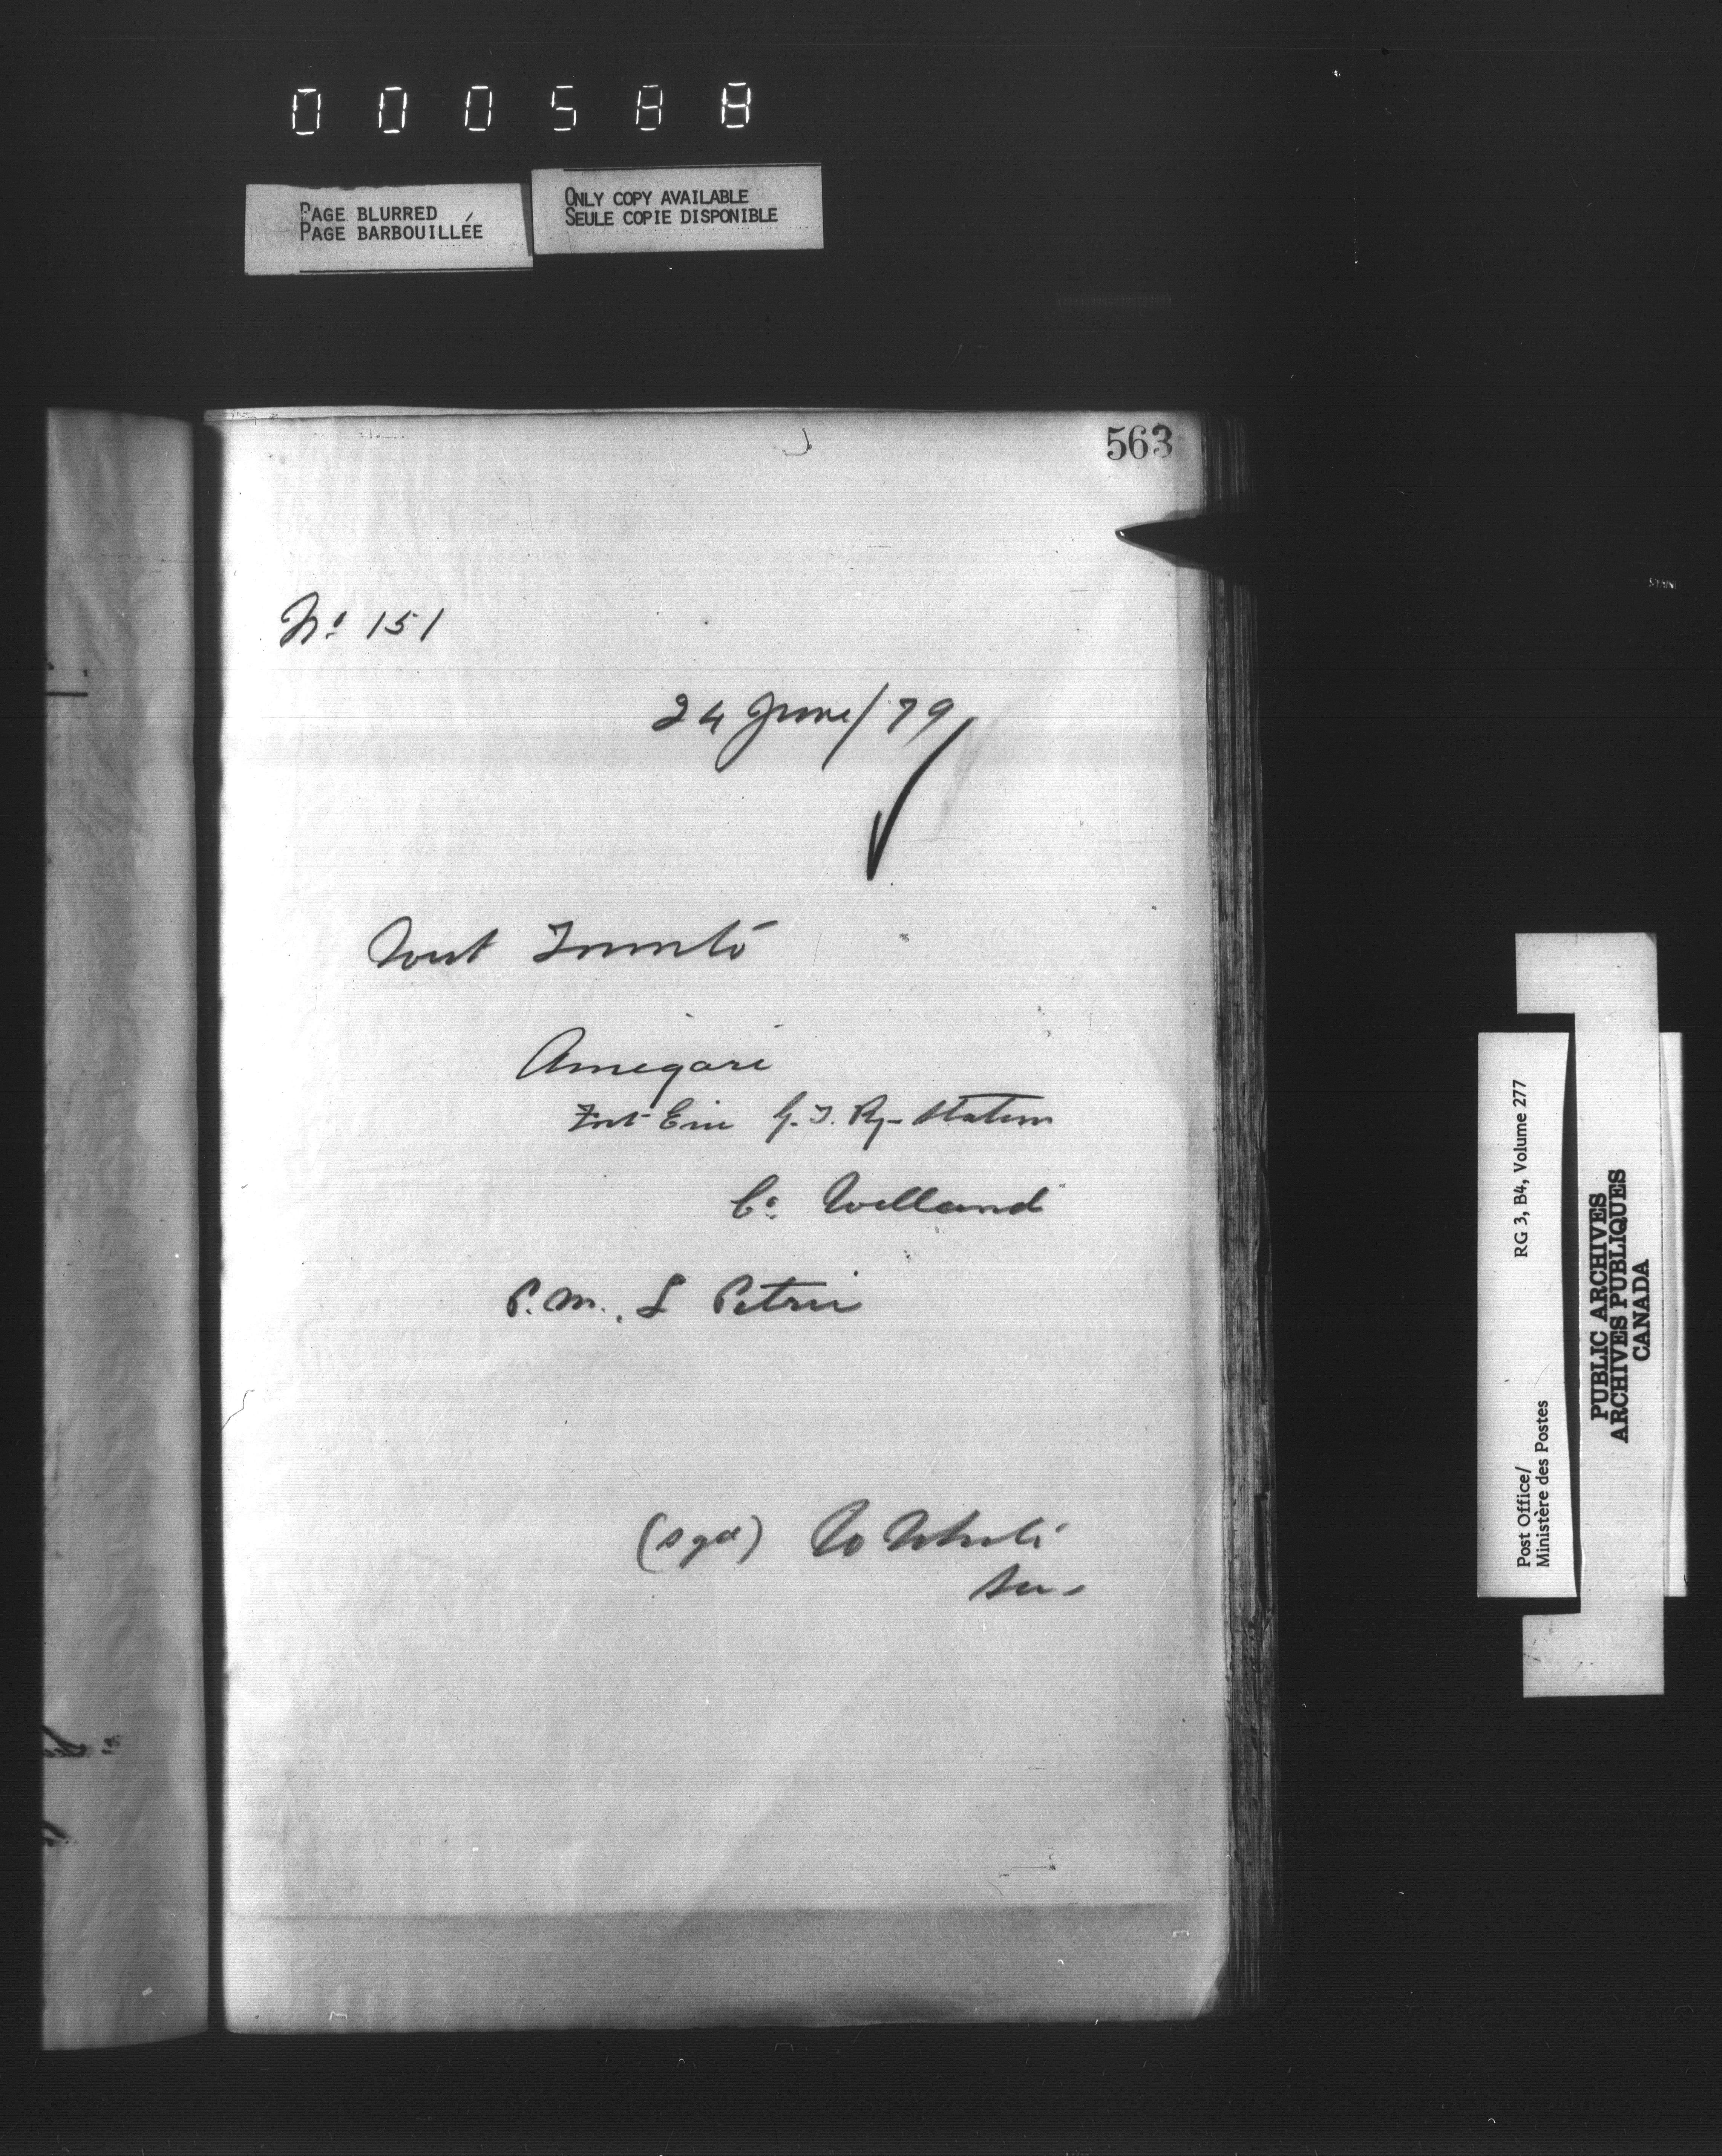 000588
PAGE BLURRED
PAGE BARBOUILLÉE
ONLY COPY AVAILABLE
SEULE COPIE DISPONIBLE
563
No 151
24 June/79
West Toronto
Amigari
Fort Erie G. T. Ry Station
Co Welland
P.M. L Petrie
(sgd) W White
Sec
Post Office/
Ministère des Postes
RG 3, B4, Volume 277
PUBLIC ARCHIVES
ARCHIVES PUBLIQUES
CANADA